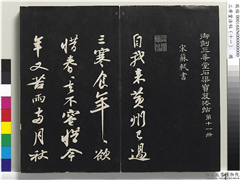 御刻三希堂石渠寶笈法帖第十一冊
宋蘇軾書
自我来黄州已過
三寒食年年欲
惜春春去不容惜今
年又苦雨兩月秋